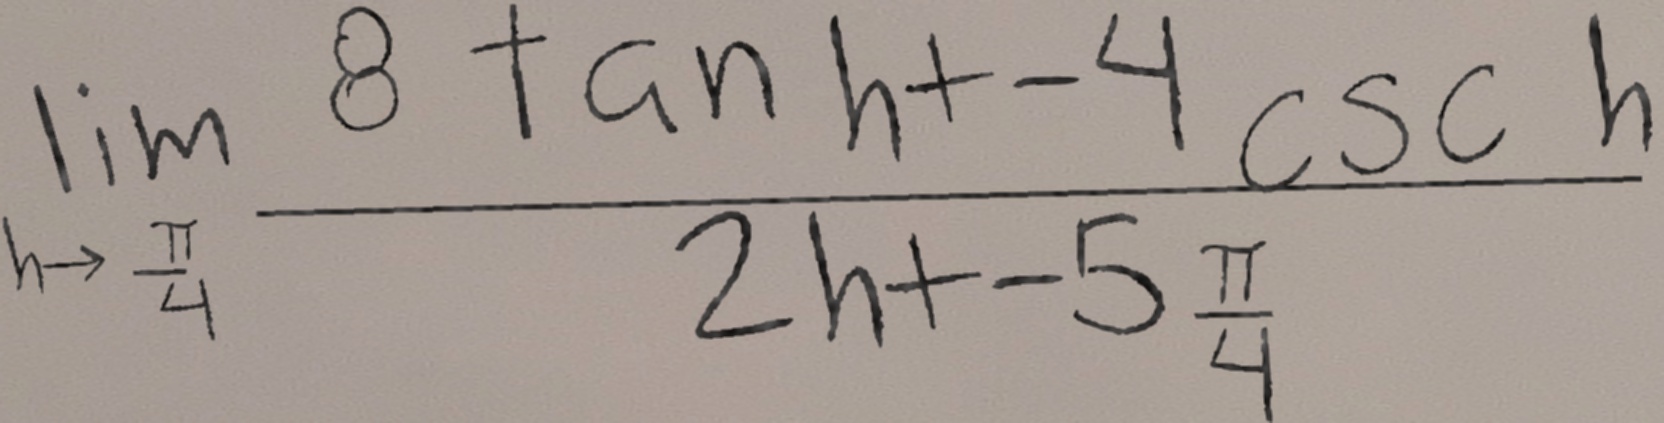 \lim_{h \to \frac{\pi}{4}} \frac{8 \tan h + -4 \csc h}{2h + -5\frac{\pi}{4}}